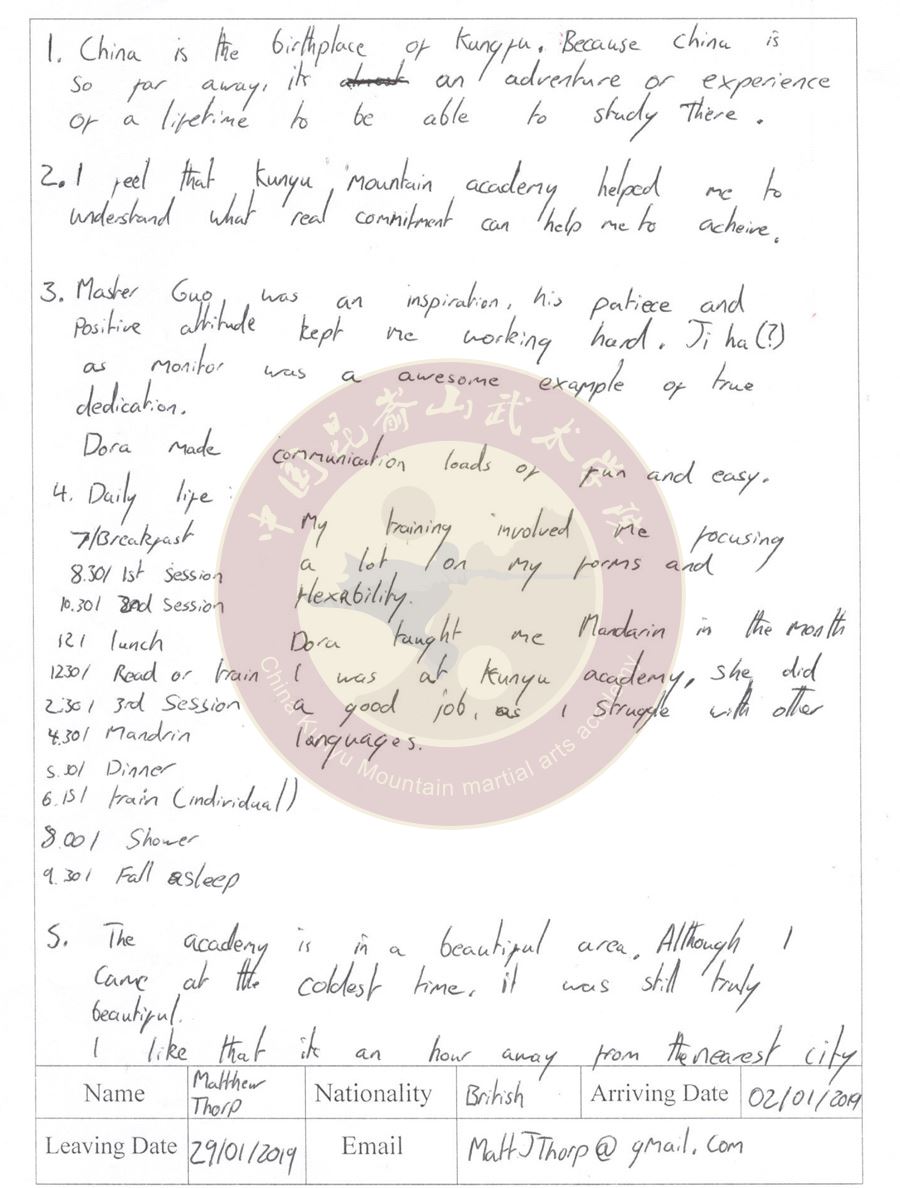 1. China is the birthplace of Kungfu. Because china is
so far away, its an adventure or experience
of a lifetime to be able to study There.
2. I feel that Kunyu Mountain academy helped me to
understand what real commitment can help me to acheive.
3. Master Guo was an inspiration, his patiece and
Positive attitude kept me working hard. Ji ha(?)
as monitor was a awesome example of true
dedication.
Dora made communication loads of fun and easy.
4. Daily life:
7/Breakfast
8.30/ 1st session
10.30/ 2nd Session
12/ lunch
1230/ Read or train
2:30/ 3rd Session
4.30/ Mandrin
5.30/ Dinner
6.15/ train (individual)
8.00/ Shower
9.30/ Fall asleep
My training involved me focusing
a lot on my forms and
flexability.
Dora taught me Mandarin in the month
I was at Kunyu academy, she did
a good job, as I struggle with other
languages.
5. The academy is in a beautiful area. Although I
came at the coldest time, it was still truly
beautiful.
I like that its an hour away from the nearest city
Name Matthew Thorp Nationality British Arriving Date 02/01/2019
Leaving Date 29/01/2019 Email MattJThorp@gmail.com
中国昆嵛山武术学院
China Kunyu Mountain martial arts academy